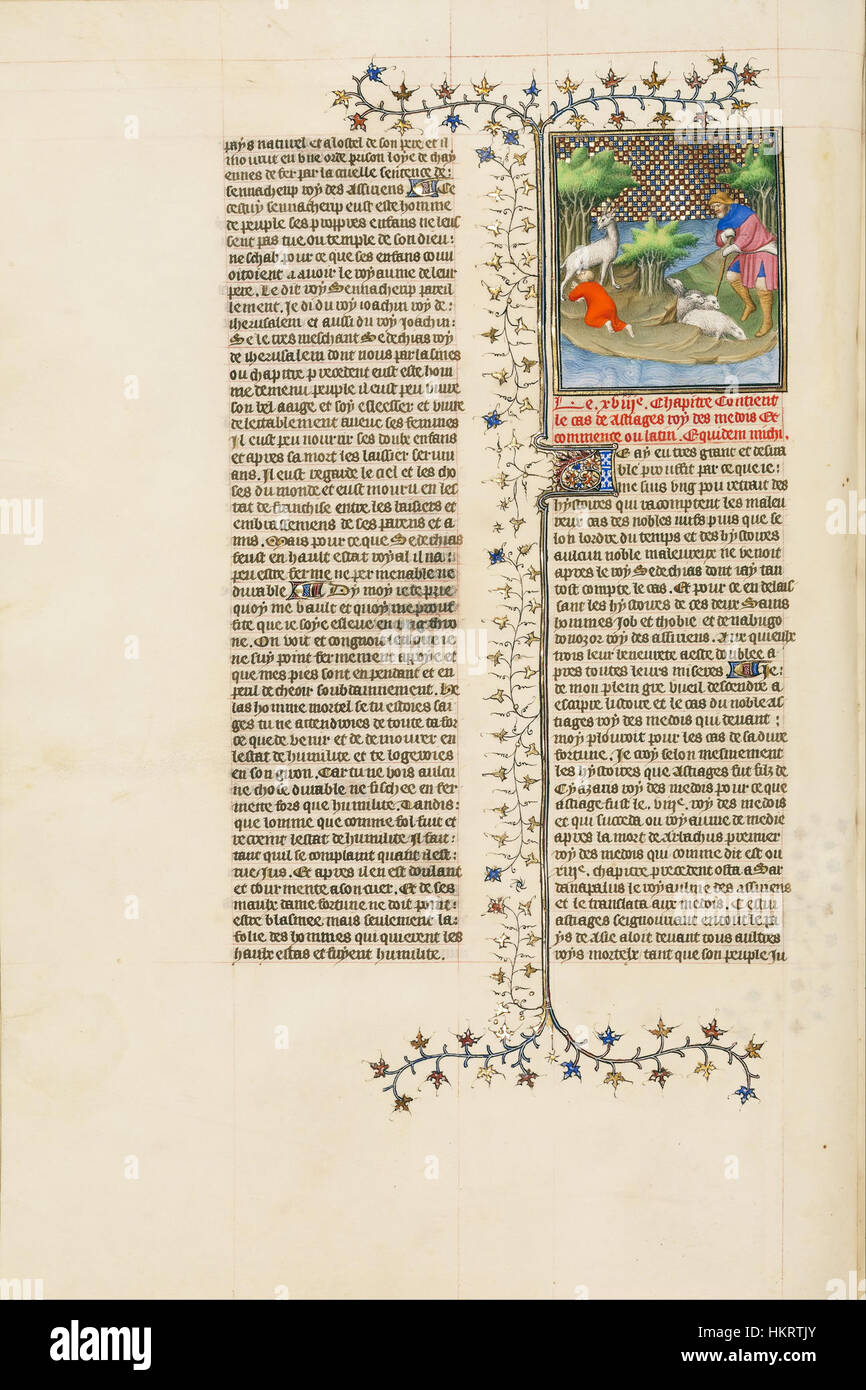 pays naturel et a lostel de son pere et il
mourut en une orde prison loye de chay
ennes de fer par la cruelle sentence de
sennacherip roy des assiriens Se
cestuy sennacherip eust este homme
de peuple ses propres enfans ne leus
sent pas tue ou temple de son dieu:
neschab. pour ce que ses enfans couu
oitoient a auoir le royaume de leur
pere. Le dit roy Sennacherip pareil
lement. Je di du roy ioachin roy de:
iherusalem et aussi du roy ioachin:
Se le tres meschant Sedechias roy
de iherusalem dont nous parlasmes
ou chapitre precedent eust este hom
me de menu peuple il eust peu viure
son bel aaige et soy esleesser et viure
delectablement auecques ses femmes
Il eust peu nourrir ses doulz enfans
et apres sa mort les laissier seurui
ans. Il eust regarde le ciel et les cho
ses du monde et eust mouru en les
tat de franchise entre les baisiers et
embrassemens de ses parens et a
mis. Mais pour ce que Sedechias
feust en hault estat royal il na:
peu estre ferme ne permenable ne
durable Dy moy ie te prie
quoy me vault et quoy me prouf
fite que ie soye esleue en ung thro
ne. On voit et congnoit que ie
ne suy point fermement apoye et
que mes pies sont en pendant et en
peril de cheoir soubdainement. He
las homme mortel se tu estoies sai
ges tu ne attendroies de toute ta for
ce que de venir et de demourer en
lestat de humilite et te logeroies
en son giron. Car tu ne vois aulcu
ne chose durable ne fischee en fer
mete fors que humilite. Tandis:
que lomme que comme fol fuit et
recreint lestat de humilite Il fait:
tant quil se complaint quant il est:
rue ius. Et apres il en est doulant
et tourmente a son cuer. Et de ses
maulx dame fortune ne doit point:
estre blasmee. mais seulement la:
folie des hommes qui quierent les
haulx estas et fuyent humilite.
Le .xviije. Chapitre Contient
le cas de Astiages roy des medois Et
commence ou latin. Equidem michi.
Je ay eu tres grant et desira
ble prouffit par ce que ie:
me suis ung pou retrait des
hystoires qui racomptent les maleu
reux cas des nobles mes puis que se
lon lordre du temps et des hystoires
aulcun noble maleureux ne venoit
apres le roy Sedechias dont iay tan
tost compte le cas. Et pour ce en delais
sant les hystoires de ces deux Sains
hommes Job et thobie et de nabugo
donozor roy des assiriens. Aux quieulx
trois leur beneurete a este doublee a
pres toutes leurs miseres Je:
de mon plein gre vueil descendre a
escripre listoire et le cas du noble as
tiages roy des medois qui deuant:
moy plouroit pour les cas de sa dure
fortune. Je croy selon mesmement
les hystoires que Astiages fut filz de
Cyazans roy des medois pour ce que
astiage fust le .viije. roy des medois
et qui succeda ou royaume de medie
apres la mort de arlachus premier
roy des medois qui comme dit est ou
xiije. chapitre precedent osta a Sar
danapalus le royaulme des assiriens
et le translata aux medois. Et cestui
astiages seignourant en tout le pa
ys de asie aloit deuant tous aultres
roys mortelx tant que son peuple Iu
alamy
Image ID: HKRTJY
www.alamy.com